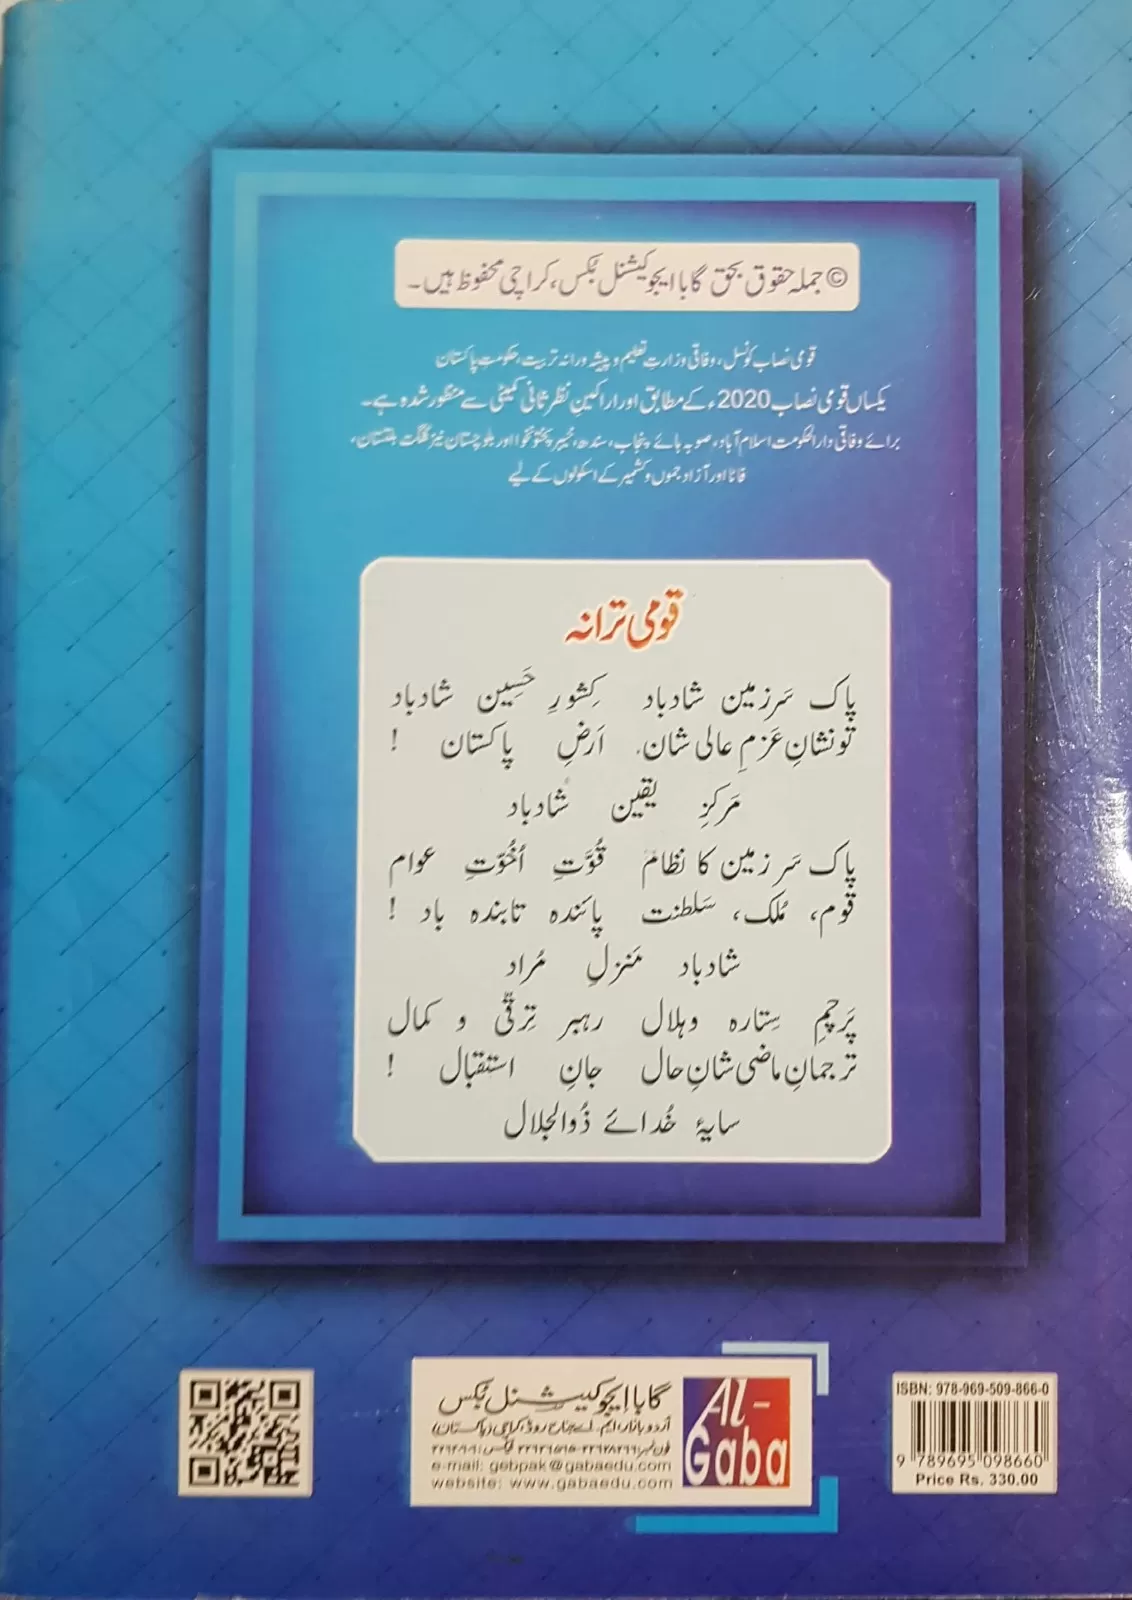 © جملہ حقوق بحق گابا ایجوکیشنل بکس، کراچی محفوظ ہیں۔
قومی نصاب کونسل، وفاقی وزارتِ تعلیم و پیشہ ورانہ تربیت، حکومتِ پاکستان
یکساں قومی نصاب 2020ء کے مطابق اور اراکینِ نظرِ ثانی کمیٹی سے منظور شدہ ہے۔
برائے وفاقی دارالحکومت اسلام آباد، صوبہ ہائے پنجاب، سندھ، خیبر پختونخوا اور بلوچستان نیز گلگت بلتستان،
فاٹا اور آزاد جموں و کشمیر کے اسکولوں کے لیے
قومی ترانہ
پاک سَرزمین شادباد کِشورِ حَسِین شادباد
تُو نشانِ عَزمِ عالی شان۔ اَرضِ پاکستان !
مَرکزِ یقین شادباد
پاک سَرزمین کا نظام قُوَّتِ اُخُوَّتِ عوام
قوم، مُلک، سَلطنت پائندہ تابندہ باد !
شادباد مَنزلِ مُراد
پَرچمِ سِتارہ وہلال رہبرِ تِرقّی و کمال
ترجمانِ ماضی شانِ حال جانِ استقبال !
سایۂ خُدائے ذُوالجلال
گابا ایجوکیشنل بکس
اُردو بازار، ایم۔اے جناح روڈ، کراچی (پاکستان)
e-mail: gebpak@gabaedu.com
website: www.gabaedu.com
Al-Gaba
ISBN: 978-969-509-866-0
9 789695 098660
Price Rs. 330.00